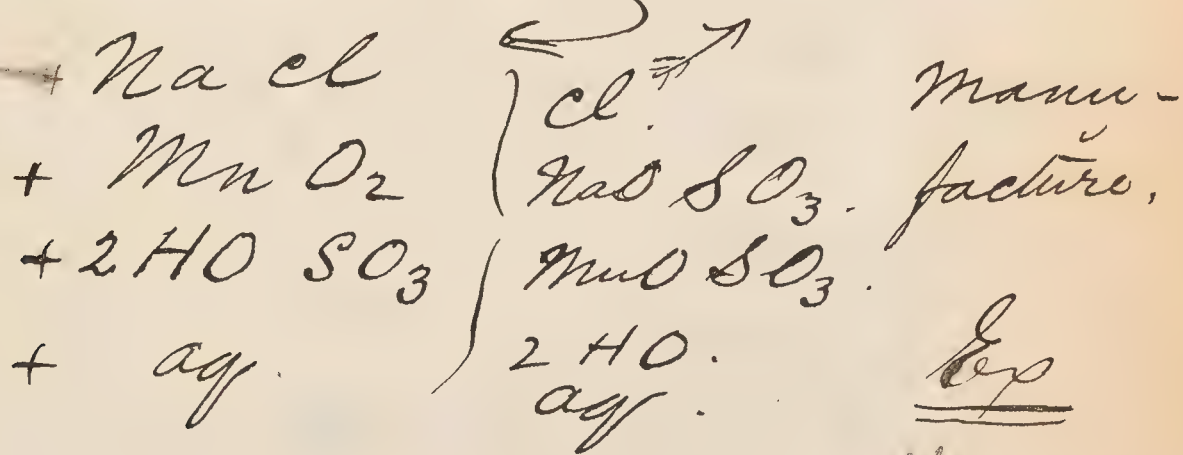 + Na Cl
+ Mn O2
+ 2 HO SO3
+ aq.
Cl.
NaO SO3.
MnO SO3.
2 HO.
aq.
Manu-
facture.
Ex